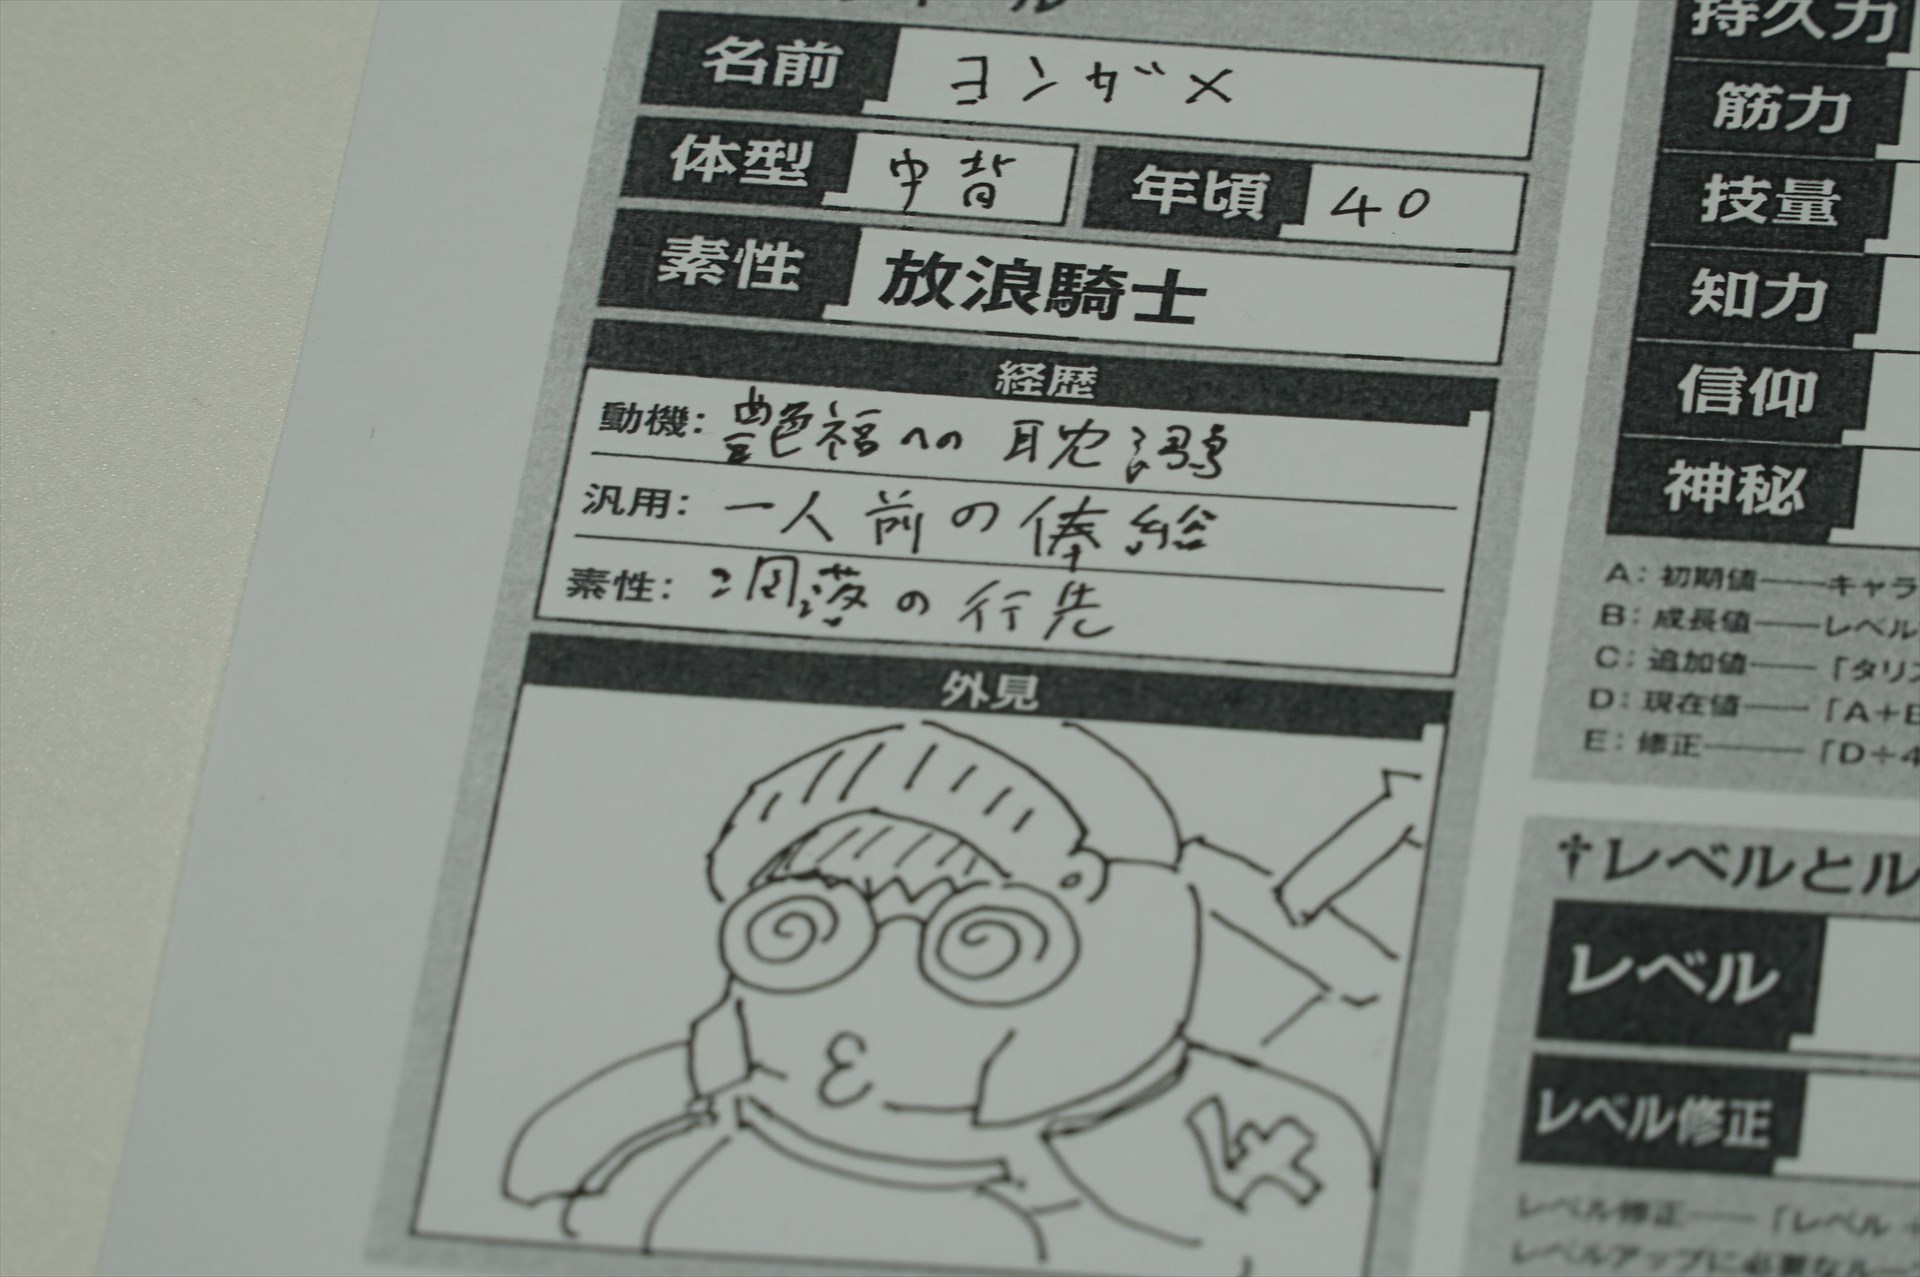 名前 ヨンダメ
体型 中背 年頃 40
素性 放浪騎士
経歴
動機: 艶福への耽溺
汎用: 一人前の俸給
素性: 凋落の行先
外見
4
持久力
筋力
技量
知力
信仰
神秘
A: 初期値――キャラ
B: 成長値――レベル
C: 追加値――「タリス
D: 現在値――「A+B
E: 修正―――「D÷4
†レベルとル
レベル
レベル修正
レベル修正――「レベル÷
レベルアップに必要なルー